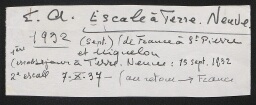 E. A. Escale à Terre. Neuve
1932 (Sept.) (de France à St Pierre
et Miquelon
1ère escale à Terre. Neuve : 15 sept. 1932
2e escale 7-X-34 - (au retour → France